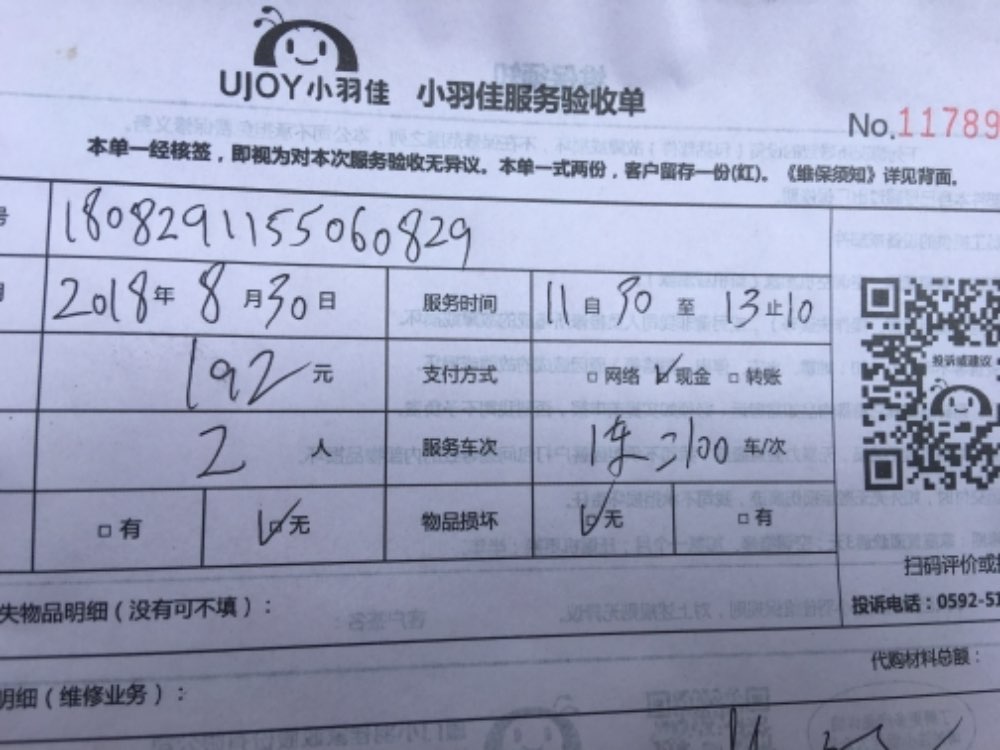 UJOY小羽佳 小羽佳服务验收单
No.11789
本单一经核签，即视为对本次服务验收无异议。本单一式两份，客户留存一份(红)。《维保须知》详见背面。
号 1808291155060829
2018年8月30日 服务时间 11自30至13止10
192元 支付方式 □网络 ☑现金 □转账
2人 服务车次 车/次
□有 ☑无 物品损坏 ☑无 □有
投诉或建议
扫码评价或
失物品明细（没有可不填）：
投诉电话：0592-51
代购材料总额：
明细（维修业务）：